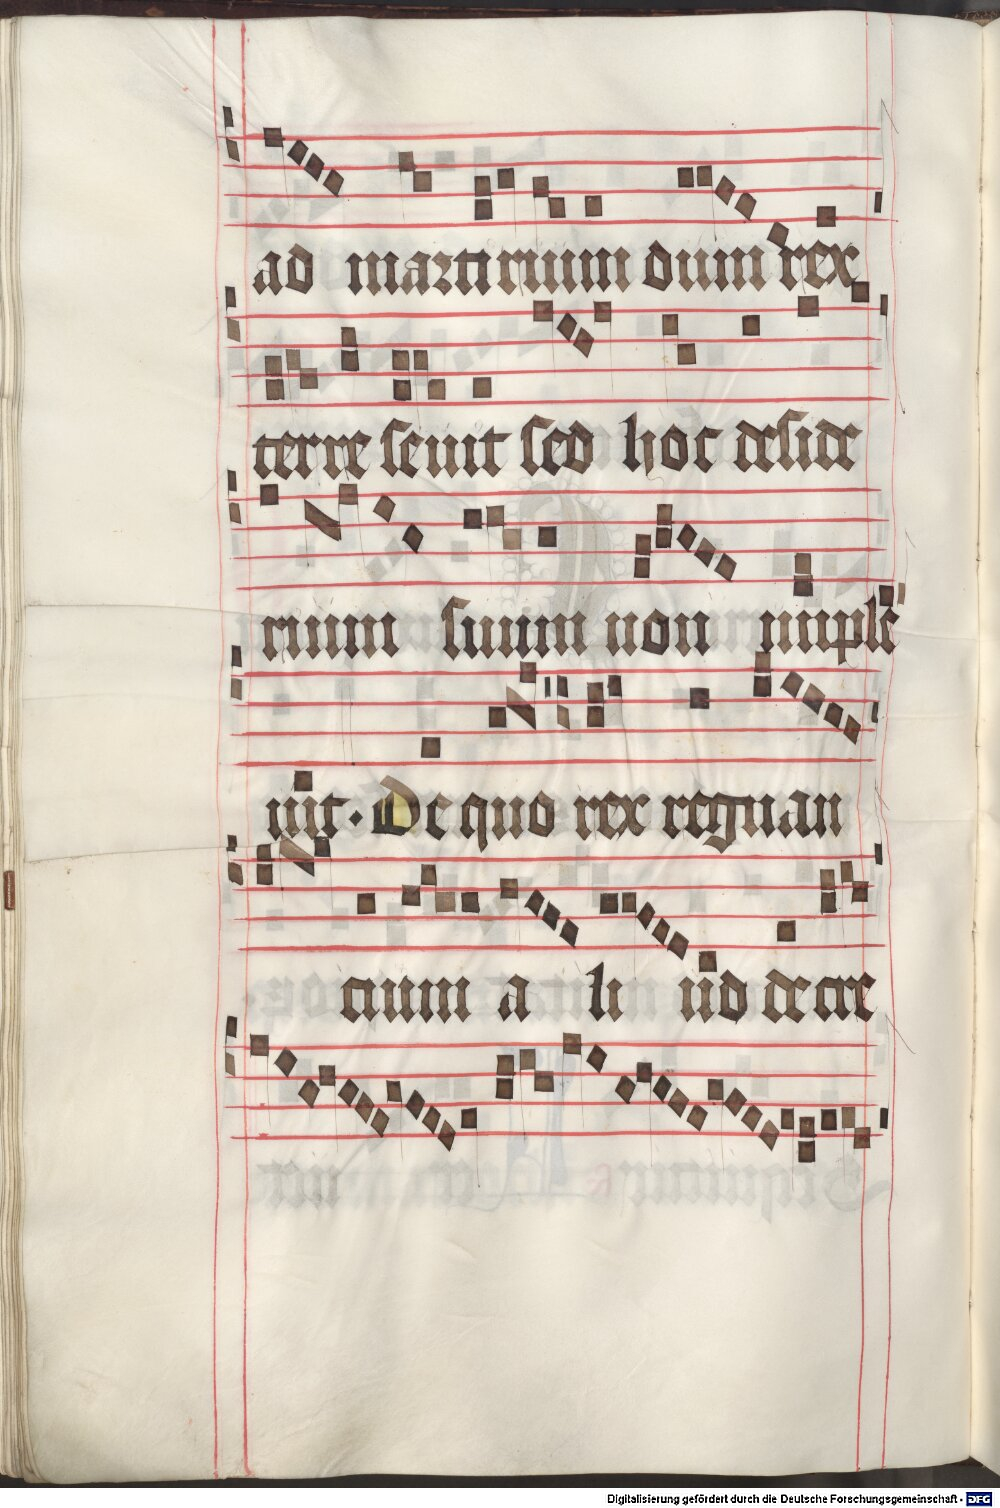 ad martirium dum rex
terre seuit sed hoc deside
rium suum non imple
uit. De quo rex regnan
cium a li ud decre
Digitalisierung gefördert durch die Deutsche Forschungsgemeinschaft - DFG